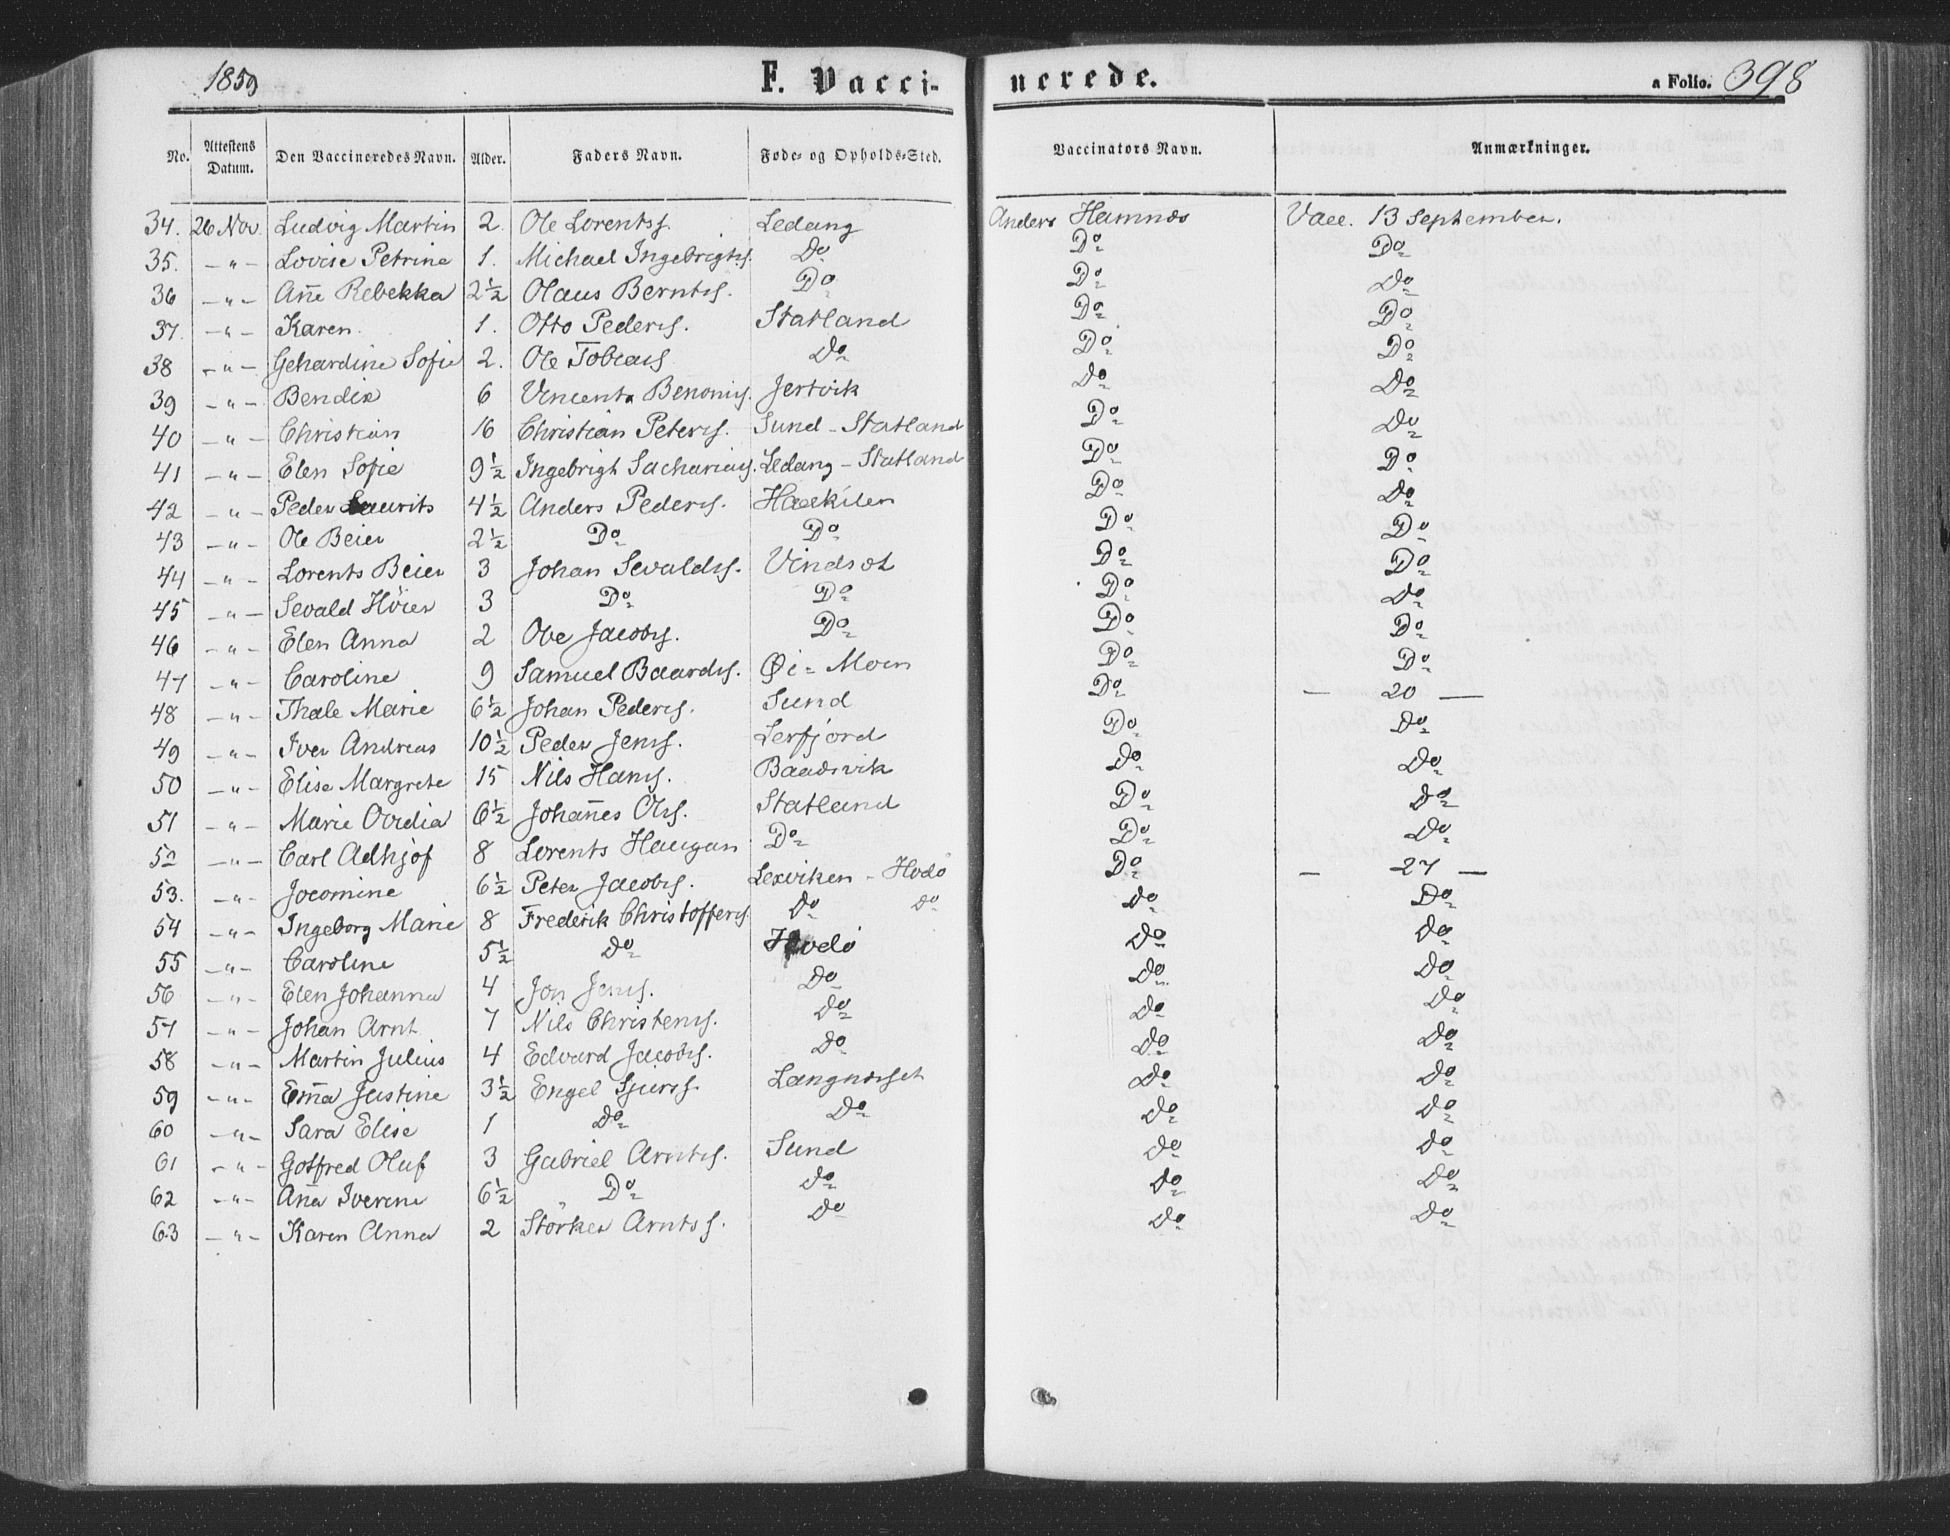 1859 F. Vacci- nerede. a Folio. 398
No. Attestens Datum. Den Vaccineredes Navn. Alder. Faders Navn. Føde- og Opholds-Sted. Vaccinators Navn. Anmærkninger.
34. 26 Nov Ludvig Martin 2. Ole Lorentss. Ledang Anders Hamnæs Vacc. 13 September.
35. — " — Lovise Petrine 1. Michael Ingebrigtss. Do Do Do
36 — " — Anne Rebekka 2½ Olaus Berntss. Do Do Do
37. — " — Karen 1. Otto Pederss. Statland Do Do
38 — " — Gehardine Sofie 2. Ole Tobiass Do Do Do
39 — " — Bendix 6 Vincents Benoniss. Jertvik Do Do
40 — " — Christian 16 Christian Peterss. Sund - Statland Do Do
41 — " — Elen Sofie 9½ Ingebrigt Sachariass. Ledang - Statland Do Do
42 — " — Peder Laurits 4½ Anders Pederss. Do Do
43 — " — Ole Beier 2½ Do Do Do Do
44 — " — Lorents Beier 3 Johan Sevaldss. Vindsæt Do Do
45 — " — Sevald Höier 3 Do Do Do Do
46 — " — Elen Anna 2 Ove Jacobss. Do Do Do
47 — " — Caroline 9 Samuel Baardss. Øi - Moen Do Do
48 — " — Thale Marie 6½ Johan Pederss. Sund Do — 20 —
49 — " — Iver Andreas 10½ Peder Jenss. Lerfjord Do Do
50 — " — Elise Margrete 15 Nils Hanss. Baadsvik Do Do
51 — " — Marie Ovidia 6½ Johannes Olss. Statland Do Do
52 — " — Carl Adhjof 8 Lorents Haugan Do Do Do
53. — " — Jocomine 6½ Peter Jacobss. Lexviken - Hodö Do — 27 —
54 — " — Ingeborg Marie 8 Frederik Christofferss. Do Do Do Do
55 — " — Caroline 5½ Do Hodö Do Do
56 — " — Elen Johanna 4 Jon Jenss. Do Do Do
57 — " — Johan Arnt 7 Nils Christenss. Do Do Do
58 — " — Martin Julius 4 Edvard Jacobss. Do Do Do
59 — " — Emma Justine 3½ Engel Sjurss. Langnæset Do Do
60 — " — Sara Elise 1 Do Do Do Do
61 — " — Gotfred Oluf 3 Gabriel Arntss. Sund Do Do
62 — " — Anna Iverine 6½ Do Do Do Do
63 — " — Karen Anna 2 Störker Arntss. Do Do Do